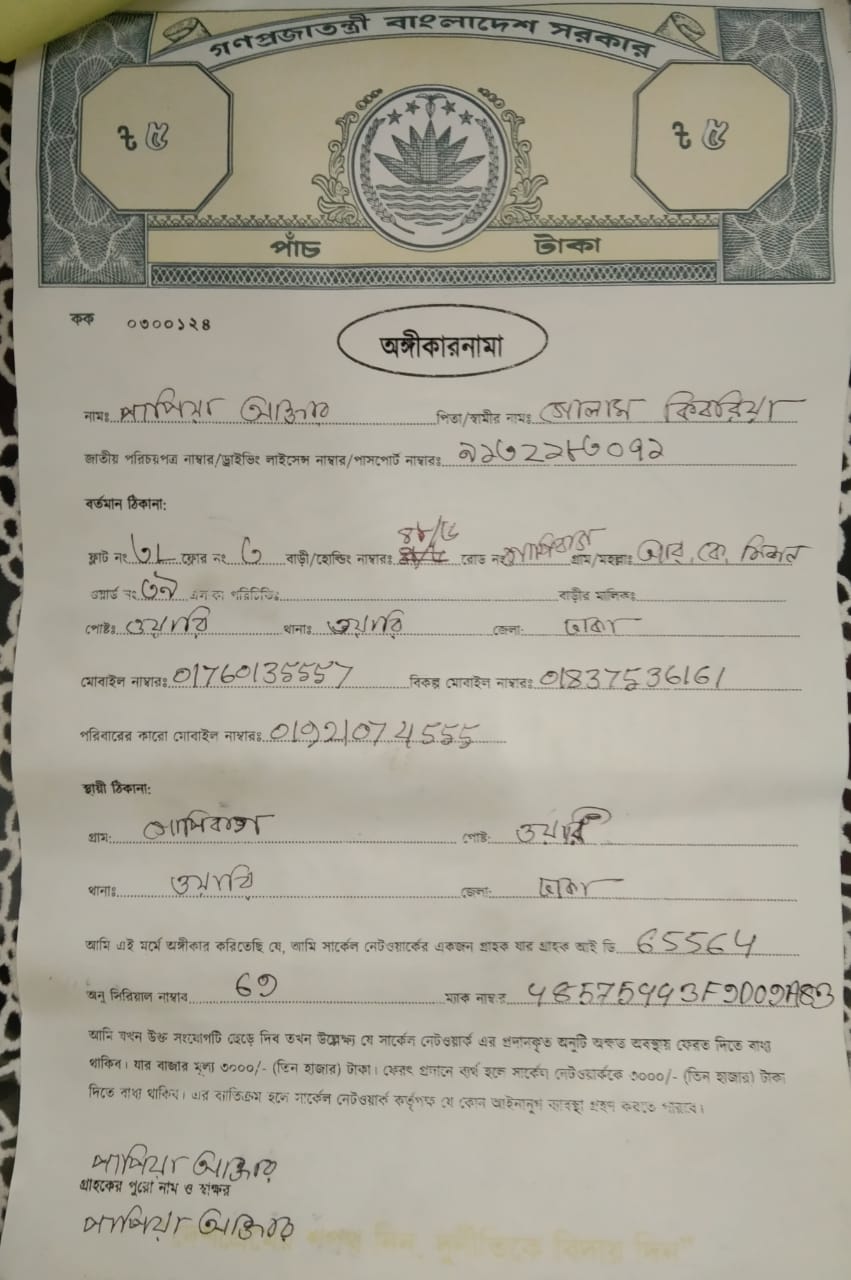 গণপ্রজাতন্ত্রী বাংলাদেশ সরকার
৳ ৫ ৳ ৫
পাঁচ টাকা
কক ০৩০০১২৪
অঙ্গীকারনামা
নামঃ পাপিয়া আক্তার পিতা/স্বামীর নামঃ গোলাম কিবরিয়া
জাতীয় পরিচয়পত্র নাম্বার/ড্রাইভিং লাইসেন্স নাম্বার/পাসপোর্ট নাম্বারঃ
বর্তমান ঠিকানা:
ফ্লাট নং ফ্লোর নং ৩ বাড়ী/হোল্ডিং নাম্বারঃ রোড নং গ্রাম/মহল্লাঃ আর, কে, মিশন
ওয়ার্ড নং ৩৯ এলাকা পরিচিতিঃ বাড়ীর মালিকঃ
পোষ্টঃ ওয়ারি থানাঃ ওয়ারি জেলা: ঢাকা
মোবাইল নাম্বারঃ 01760135557 বিকল্প মোবাইল নাম্বারঃ 01837536161
পরিবারের কারো মোবাইল নাম্বারঃ 01921074555
স্থায়ী ঠিকানা:
গ্রাম: পোষ্ট: ওয়ারি
থানাঃ ওয়ারি জেলা: ঢাকা
আমি এই মর্মে অঙ্গীকার করিতেছি যে, আমি সার্কেল নেটওয়ার্কের একজন গ্রাহক যার গ্রাহক আই ডি 65564
অনু সিরিয়াল নাম্বার ম্যাক নাম্বার
আমি যখন উক্ত সংযোগটি ছেড়ে দিব তখন উল্লেখ্য যে সার্কেল নেটওয়ার্ক এর প্রদানকৃত অনুটি অক্ষত অবস্থায় ফেরত দিতে বাধ্য
থাকিব। যার বাজার মূল্য ৩০০০/- (তিন হাজার) টাকা। ফেরৎ প্রদানে ব্যর্থ হলে সার্কেল নেটওয়ার্ককে ৩০০০/- (তিন হাজার) টাকা
দিতে বাধ্য থাকিব। এর ব্যতিক্রম হলে সার্কেল নেটওয়ার্ক কর্তৃপক্ষ যে কোন আইনানুগ ব্যবস্থা গ্রহণ করতে পারবে।
পাপিয়া আক্তার
গ্রাহকের পুরো নাম ও স্বাক্ষর
পাপিয়া আক্তার